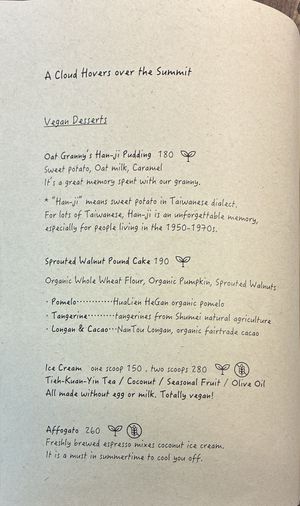 A Cloud Hovers over the Summit
Vegan Desserts
Oat Granny's Han-ji Pudding 180
Sweet potato, Oat milk, Caramel
It's a great memory spent with our granny.
* "Han-ji" means sweet potato in Taiwanese dialect.
For lots of Taiwanese, Han-ji is an unforgettable memory,
especially for people living in the 1950-1970s.
Sprouted Walnut Pound Cake 190
Organic Whole Wheat Flour, Organic Pumpkin, Sprouted Walnuts
· Pomelo············HuaLien HeGan organic pomelo
· Tangerine·········tangerines from Shumei natural agriculture
· Longan & Cacao···NanTou Longan, organic fairtrade cacao
Ice Cream one scoop 150 . two scoops 280
Tieh-Kuan-Yin Tea / Coconut / Seasonal Fruit / Olive Oil
All made without egg or milk. Totally vegan!
Affogato 260
Freshly brewed espresso mixes coconut ice cream.
It is a must in summertime to cool you off.